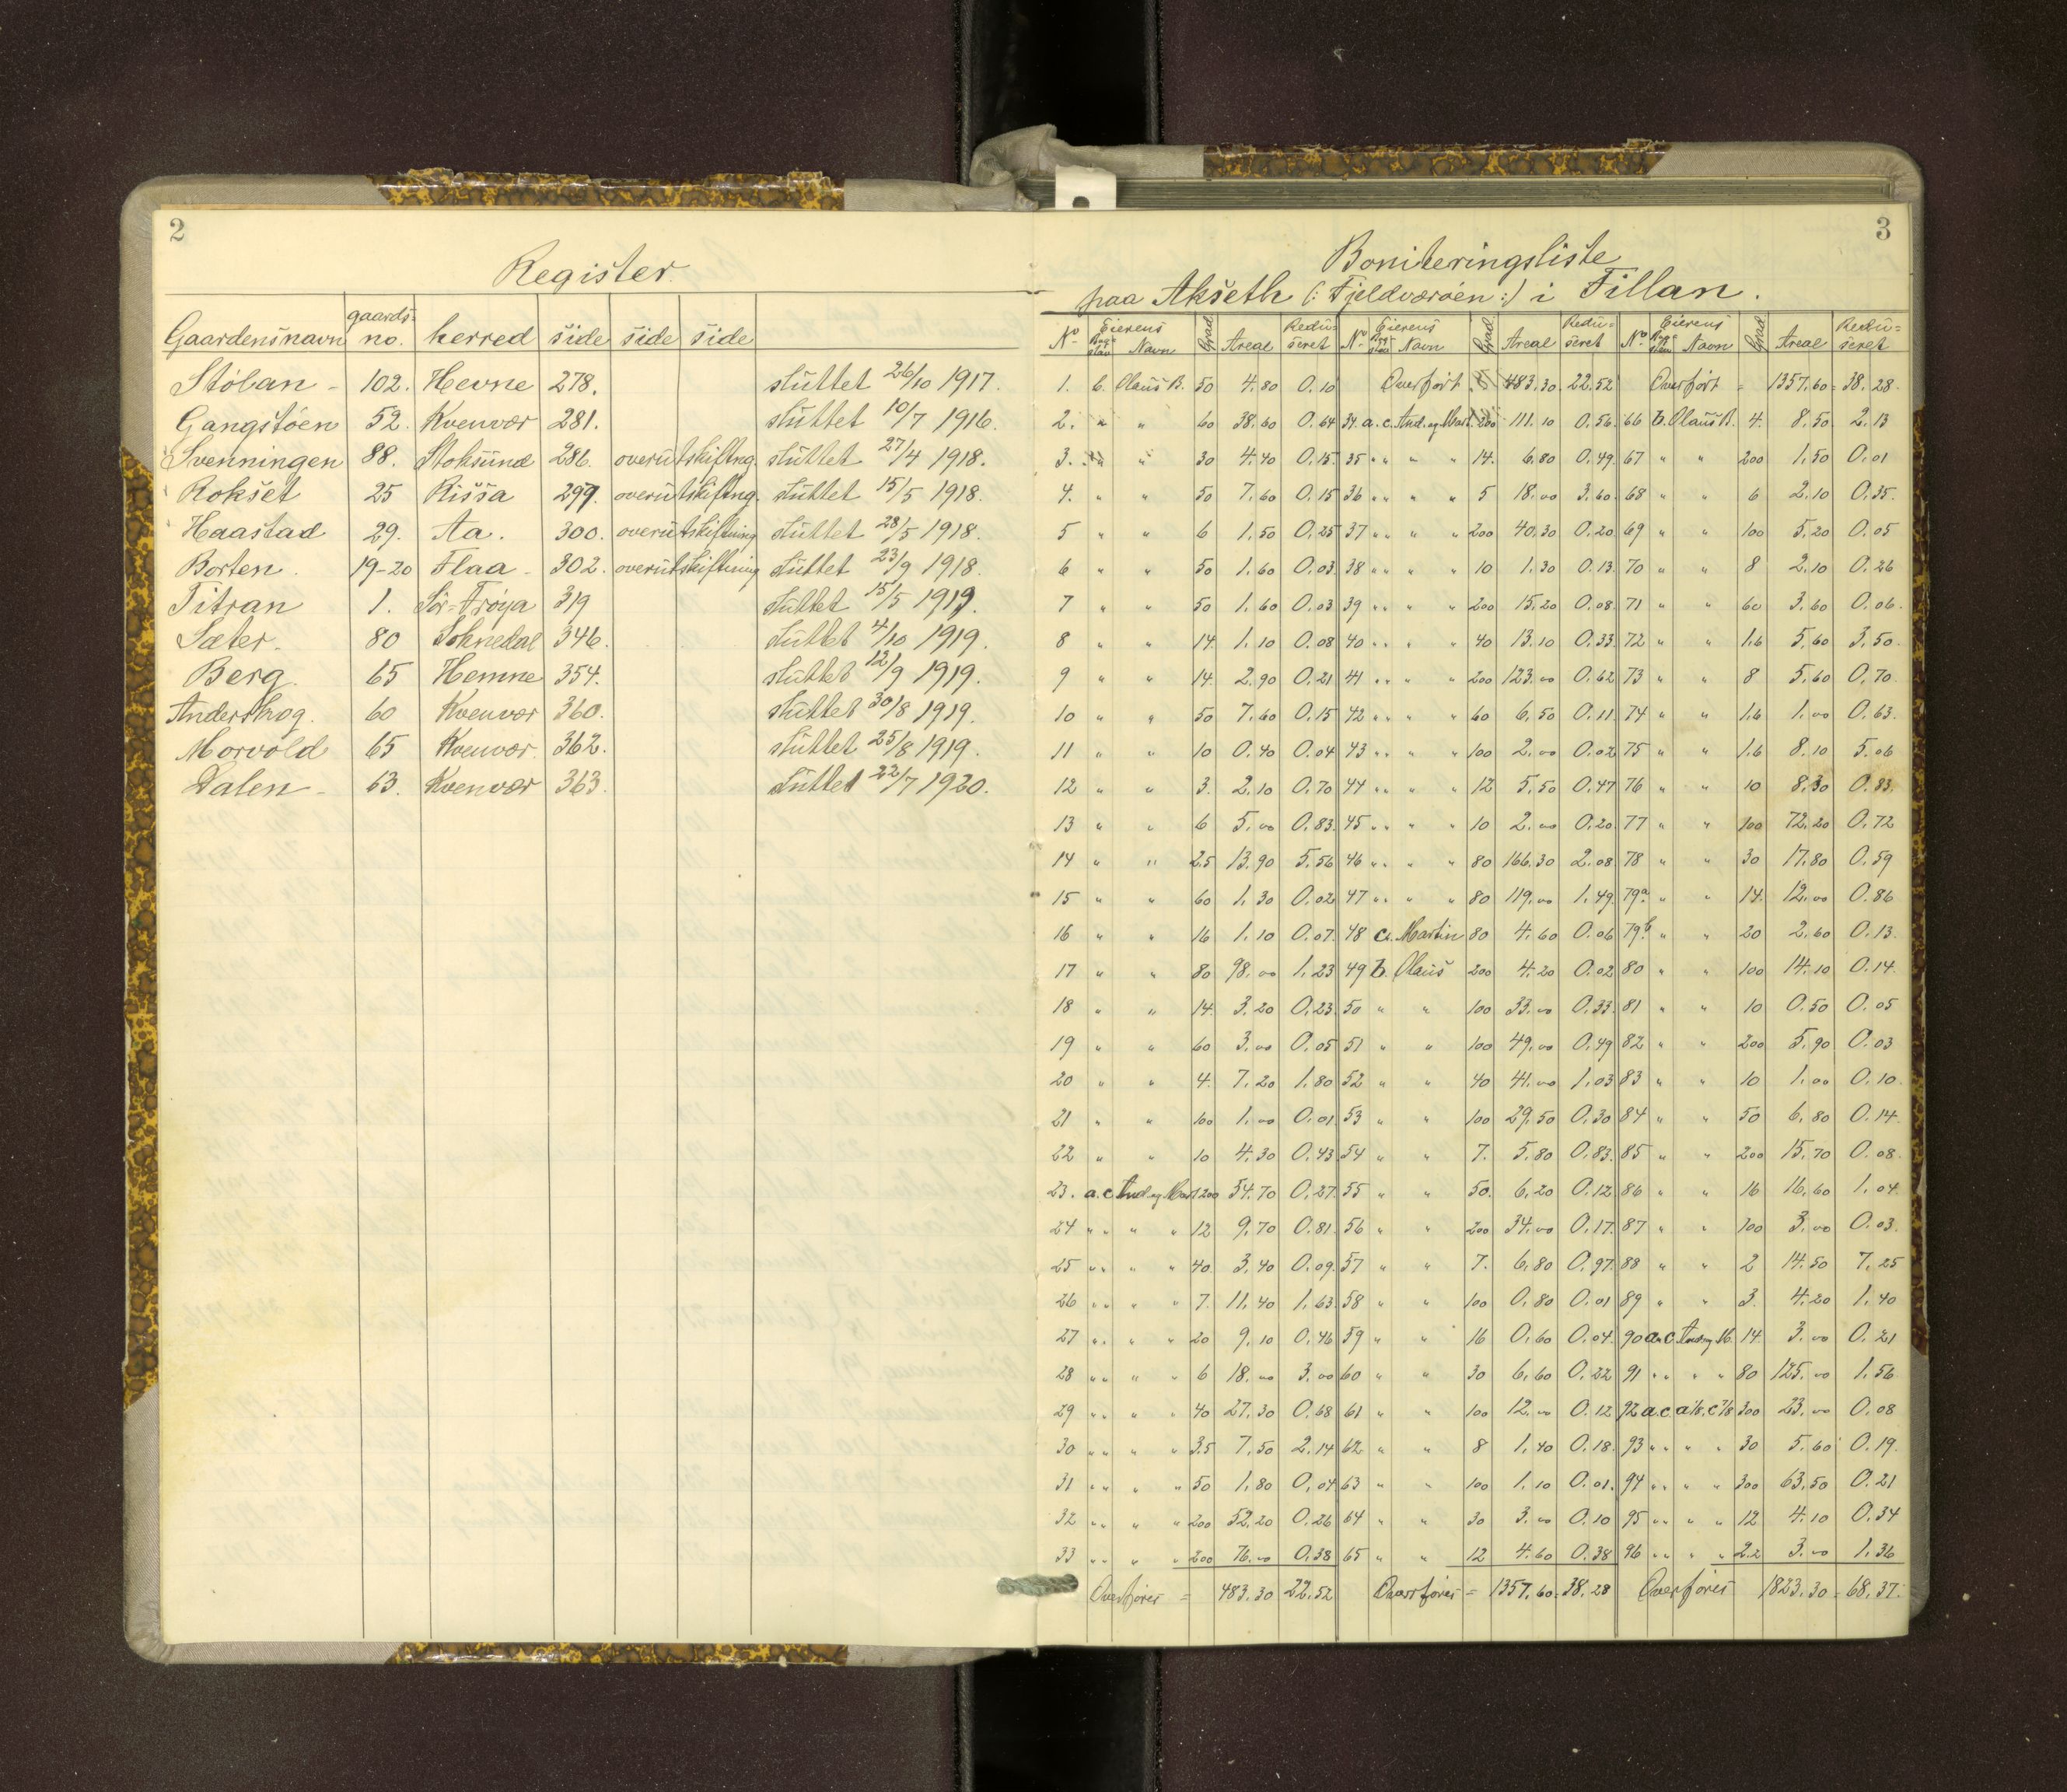 2
Register
Gaardensnavn gaards-no. herred side side side
Stölan - 102. Hevne 278. sluttet 26/10 1917.
Gangstöen 52. Kvenvær 281. sluttet 10/7 1916.
Svenningen 88. Stoksund 286. overutskiftng. sluttet 27/4 1918.
Rokset 25 Rissa 299. overutskiftng. sluttet 15/5 1918.
Haastad 29. Aa. 300. overutskiftning sluttet 28/5 1918.
Borten 19-20 Flaa - 302. overutskiftning sluttet 23/9 1918.
Titran 1. Sör-Fröya 319 sluttet 15/5 1919.
Sæter. 80 Soknedal 346. sluttet 4/10 1919.
Berg. 65 Hemne 354. sluttet 12/9 1919.
Anderskog. 60 Kvenvær 360. sluttet 30/8 1919.
Morvold 65 Kvenvær. 362. sluttet 25/8 1919.
Dalen - 63. Kvenvær 363. sluttet 22/7 1920.
3
Boniteringsliste
paa Akseth (: Fjeldværöen :) i Fillan.
No Eierens Bogstav Navn Grad Areal Reduseret No Eierens Bogstav Navn Grad Areal Reduseret No Eierens Bogstav Navn Grad Areal Reduseret
1. b. Olaus B. 50 4.80 0.10 Overfört 483.30 22.52 Overfört = 1357.60 = 38.28
2. " " 60 38.60 0.64 34. a. c. And. og Mart. 200 111.10 0.56 66 b. Olaus B. 4. 8.50 2.13
3. " " 30 4.40 0.15 35 " " " " 14. 6.80 0.49 67 " " 200 1.50 0.01
4. " " 50 7.60 0.15 36 " " " " 5 18.00 3.60 68 " " 6 2.10 0.35
5 " " 6 1.50 0.25 37 " " " " 200 40.30 0.20 69 " " 100 5.20 0.05
6 " " 50 1.60 0.03 38 " " " " 10 1.30 0.13 70 " " 8 2.10 0.26
7 " " 50 1.60 0.03 39 " " " " 200 15.20 0.08 71 " " 60 3.60 0.06
8 " " 14. 1.10 0.08 40 " " " " 40 13.10 0.33 72 " " 1.6 5.60 3.50
9 " " 14. 2.90 0.21 41 " " " " 200 123.00 0.62 73 " " 8 5.60 0.70
10 " " 50 7.60 0.15 42 " " " " 60 6.50 0.11 74 " " 1.6 1.00 0.63
11 " " 10 0.40 0.04 43 " " " " 100 2.00 0.02 75 " " 1.6 8.10 5.06
12 " " 3. 2.10 0.70 44 " " " " 12 5.50 0.47 76 " " 10 8.30 0.83
13 " " 6 5.00 0.83 45 " " " " 10 2.00 0.20 77 " " 100 72.20 0.72
14 " " 2.5 13.90 5.56 46 " " " " 80 166.30 2.08 78 " " 30 17.80 0.59
15 " " 60 1.30 0.02 47 " " " " 80 119.00 1.49 79a " " 14. 12.00 0.86
16 " " 16 1.10 0.07 48 c. Martin 80 4.60 0.06 79b " " 20 2.60 0.13
17 " " 80 98.00 1.23 49 b. Olaus 200 4.20 0.02 80 " " 100 14.10 0.14
18 " " 14. 3.20 0.23 50 " " 100 33.00 0.33 81 " " 10 0.50 0.05
19 " " 60 3.00 0.05 51 " " 100 49.00 0.49 82 " " 200 5.90 0.03
20 " " 4. 7.20 1.80 52 " " 40 41.00 1.03 83 " " 10 1.00 0.10
21 " " 100 1.00 0.01 53 " " 100 29.50 0.30 84 " " 50 6.80 0.14
22 " " 10 4.30 0.43 54 " " 7. 5.80 0.83 85 " " 200 15.70 0.08
23. a. c And. og Mart. 200 54.70 0.27 55 " " 50. 6.20 0.12 86 " " 16 16.60 1.04
24 " " " " 12 9.70 0.81 56 " " 200 34.00 0.17 87 " " 100 3.00 0.03
25 " " " " 40 3.40 0.09 57 " " 7. 6.80 0.97 88 " " 2 14.50 7.25
26 " " " " 7. 11.40 1.63 58 " " 100 0.80 0.01 89 " " 3. 4.20 1.40
27 " " " " 20 9.10 0.46 59 " " 16 0.60 0.04 90 a. c. And. og M. 14. 3.00 0.21
28 " " " " 6 18.00 3.00 60 " " 30 6.60 0.22 91 " " " " 80 125.00 1.56
29 " " " " 40 27.30 0.68 61 " " 100 12.00 0.12 92 a. c. a 1/8. c 7/8 300 23.00 0.08
30 " " " " 3.5 7.50 2.14 62 " " 8 1.40 0.18 93 " " " " 30 5.60 0.19
31 " " " " 50 1.80 0.04 63 " " 100 1.10 0.01 94 " " " " 300 63.50 0.21
32 " " " " 200 52.20 0.26 64 " " 30 3.00 0.10 95 " " " " 12 4.10 0.34
33 " " " " 200 76.00 0.38 65 " " 12 4.60 0.38 96 " " " " 2.2 3.00 1.36
Overföres = 483.30 22.52 Overföres = 1357.60 = 38.28 Overföres 1823.30 = 68.37